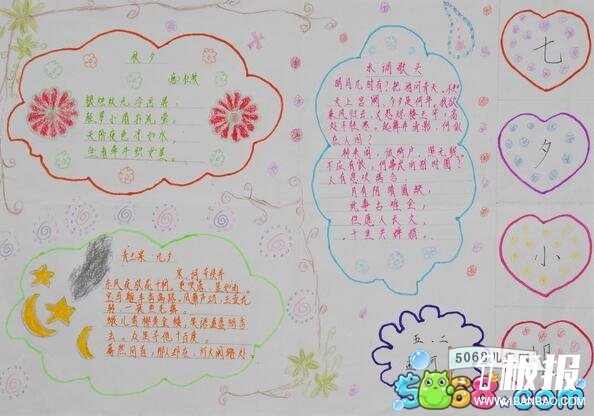 秋夕
唐:杜牧
银烛秋光冷画屏,
轻罗小扇扑流萤。
天阶夜色凉如水,
坐看牵牛织女星。
水调歌头
明月几时有?把酒问青天。不知
天上宫阙,今夕是何年。我欲
乘风归去,又恐琼楼玉宇,高
处不胜寒。起舞弄清影,何似
在人间?
转朱阁,低绮户,照无眠。
不应有恨,何事长向别时圆?
人有悲欢离合,
月有阴晴圆缺,
此事古难全,
但愿人长久,
千里共婵娟。
七
夕
小
报
青玉案 元夕
宋:词 辛弃疾
东风夜放花千树。更吹落、星如雨。
宝马雕车香满路。凤箫声动,玉壶光
转,一夜鱼龙舞。
蛾儿雪柳黄金缕,笑语盈盈暗香
去。众里寻他千百度。
蓦然回首,那人却在,灯火阑珊处
五.二
5068儿
5068.com
板报
www.1BANBAO.COM